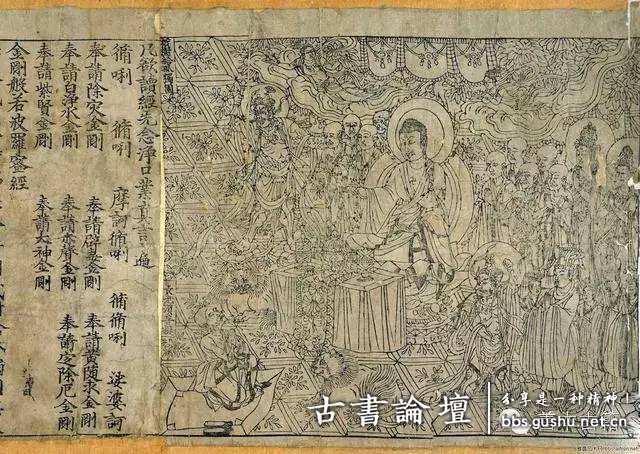 凡欲讀經先念淨口業真言一遍
脩唎 脩唎 摩訶脩唎 脩脩唎 娑婆訶
奉請除災金剛 奉請辟毒金剛 奉請黃隨求金剛
奉請白淨水金剛 奉請赤聲金剛 奉請定除厄金剛
奉請紫賢金剛 奉請大神金剛
金剛般若波羅蜜經
古書論壇
分享是一种精神!
bbs.gushu.net.cn